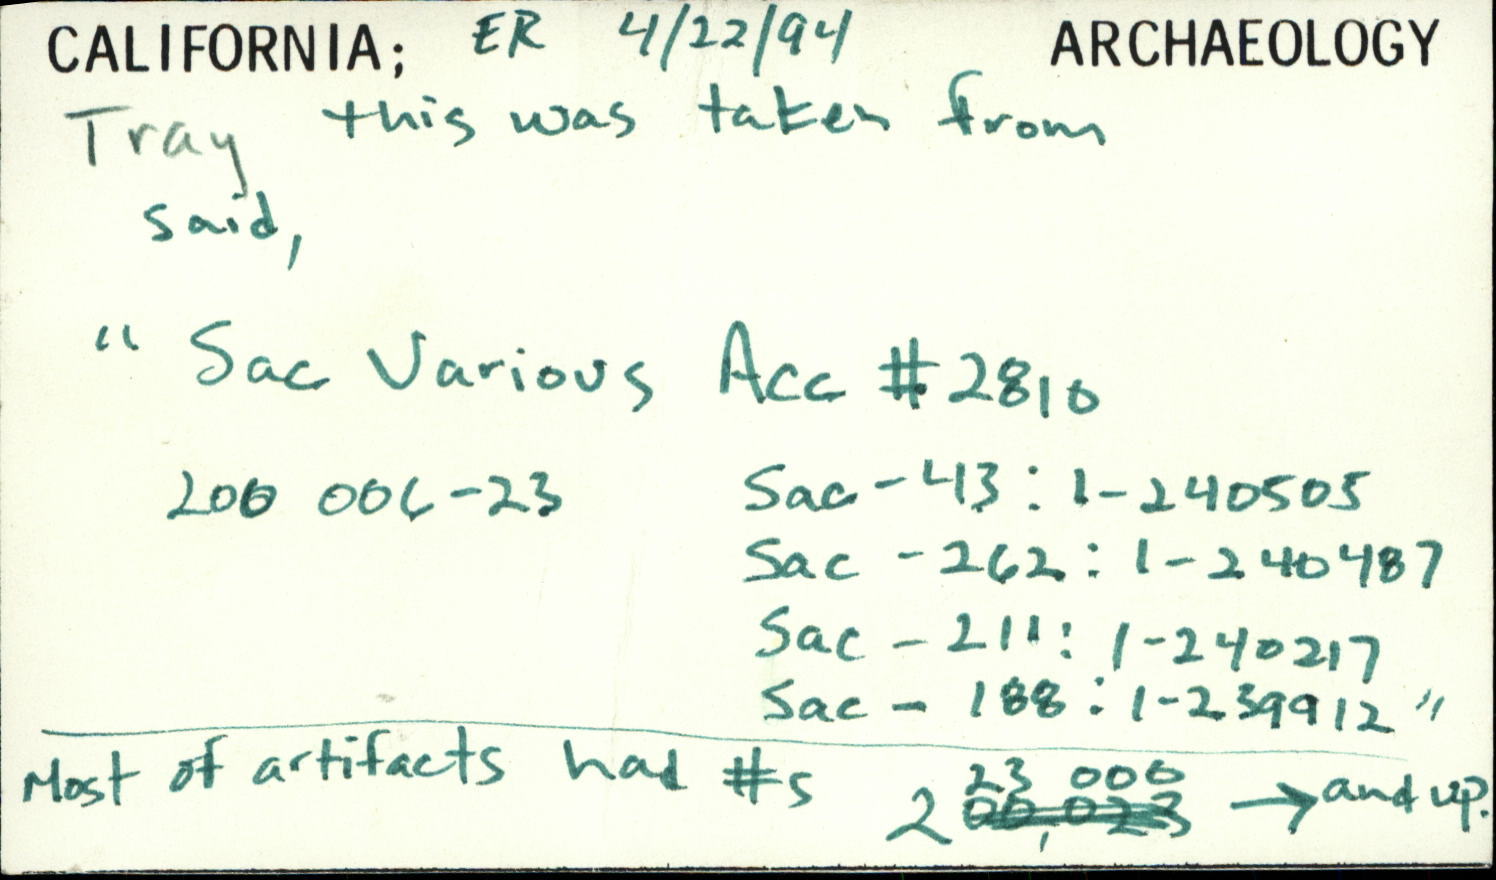 CALIFORNIA; ER 4/22/94 ARCHAEOLOGY
Tray this was taken from
said,
“ Sac Various Acc #2810
200 006-23 Sac-43: 1-240505
Sac -262: 1-240487
Sac - 211: 1-240217
Sac - 188: 1-239912 "
Most of artifacts had #s 2 23 000 → and up.